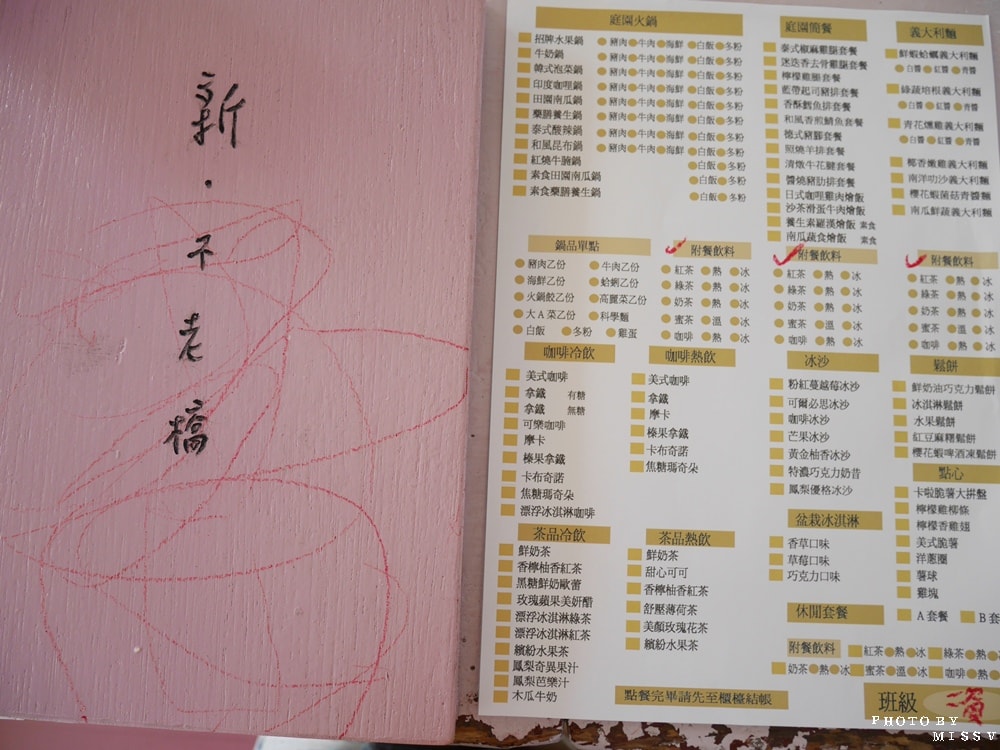 新
·
不
老
橋
庭園火鍋
招牌水果鍋 豬肉 牛肉 海鮮 白飯 多粉
牛奶鍋 豬肉 牛肉 海鮮 白飯 多粉
韓式泡菜鍋 豬肉 牛肉 海鮮 白飯 多粉
印度咖哩鍋 豬肉 牛肉 海鮮 白飯 多粉
田園南瓜鍋 豬肉 牛肉 海鮮 白飯 多粉
藥膳養生鍋 豬肉 牛肉 海鮮 白飯 多粉
泰式酸辣鍋 豬肉 牛肉 海鮮 白飯 多粉
和風昆布鍋 豬肉 牛肉 海鮮 白飯 多粉
紅燒牛腩鍋 白飯 多粉
素食田園南瓜鍋 白飯 多粉
素食藥膳養生鍋 白飯 多粉
庭園簡餐
泰式椒麻雞腿套餐
迷迭香去骨雞腿套餐
檸檬雞腿套餐
藍帶起司豬排套餐
香酥鱈魚排套餐
和風香煎鯖魚套餐
德式豬腳套餐
照燒羊排套餐
清燉牛花腱套餐
醬燒豬肋排套餐
日式咖哩雞肉燴飯
沙茶滑蛋牛肉燴飯
養生素羅漢燴飯 素食
南瓜蔬食燴飯 素食
義大利麵
鮮蝦蛤蠣義大利麵
白醬 紅醬 青醬
綠蔬培根義大利麵
白醬 紅醬 青醬
青花燻雞義大利麵
白醬 紅醬 青醬
椰香嫩雞義大利麵
南洋叻沙義大利麵
櫻花蝦菌菇青醬麵
南瓜鮮蔬義大利麵
鍋品單點
豬肉乙份 牛肉乙份
海鮮乙份 蛤蜊乙份
火鍋餃乙份 高麗菜乙份
大A菜乙份 科學麵
白飯 多粉 雞蛋
附餐飲料
紅茶 熱 冰
綠茶 熱 冰
奶茶 熱 冰
蜜茶 溫 冰
咖啡 熱 冰
附餐飲料
紅茶 熱 冰
綠茶 熱 冰
奶茶 熱 冰
蜜茶 溫 冰
咖啡 熱 冰
附餐飲料
紅茶 熱 冰
綠茶 熱 冰
奶茶 熱 冰
蜜茶 溫 冰
咖啡 熱 冰
咖啡冷飲
美式咖啡
拿鐵 有糖
拿鐵 無糖
可樂咖啡
摩卡
榛果拿鐵
卡布奇諾
焦糖瑪奇朵
漂浮冰淇淋咖啡
咖啡熱飲
美式咖啡
拿鐵
摩卡
榛果拿鐵
卡布奇諾
焦糖瑪奇朵
冰沙
粉紅蔓越莓冰沙
可爾必思冰沙
咖啡冰沙
芒果冰沙
黃金柚香冰沙
特濃巧克力奶昔
鳳梨優格冰沙
鬆餅
鮮奶油巧克力鬆餅
冰淇淋鬆餅
水果鬆餅
紅豆麻糬鬆餅
櫻花蝦啤酒凍鬆餅
點心
卡啦脆薯大拼盤
檸檬雞柳條
檸檬香雞翅
美式脆薯
洋蔥圈
薯球
雞塊
茶品冷飲
鮮奶茶
香檸柚香紅茶
黑糖鮮奶歐蕾
玫瑰蘋果美妍醋
漂浮冰淇淋綠茶
漂浮冰淇淋紅茶
繽紛水果茶
鳳梨奇異果汁
鳳梨芭樂汁
木瓜牛奶
茶品熱飲
鮮奶茶
甜心可可
香檸柚香紅茶
舒壓薄荷茶
美顏玫瑰花茶
繽紛水果茶
盆栽冰淇淋
香草口味
草莓口味
巧克力口味
休閒套餐 A套餐 B套
附餐飲料 紅茶 熱 冰 綠茶 熱
奶茶 熱 冰 蜜茶 溫 冰 咖啡 熱
點餐完畢請先至櫃檯結帳
班級
PHOTO BY
MISSV